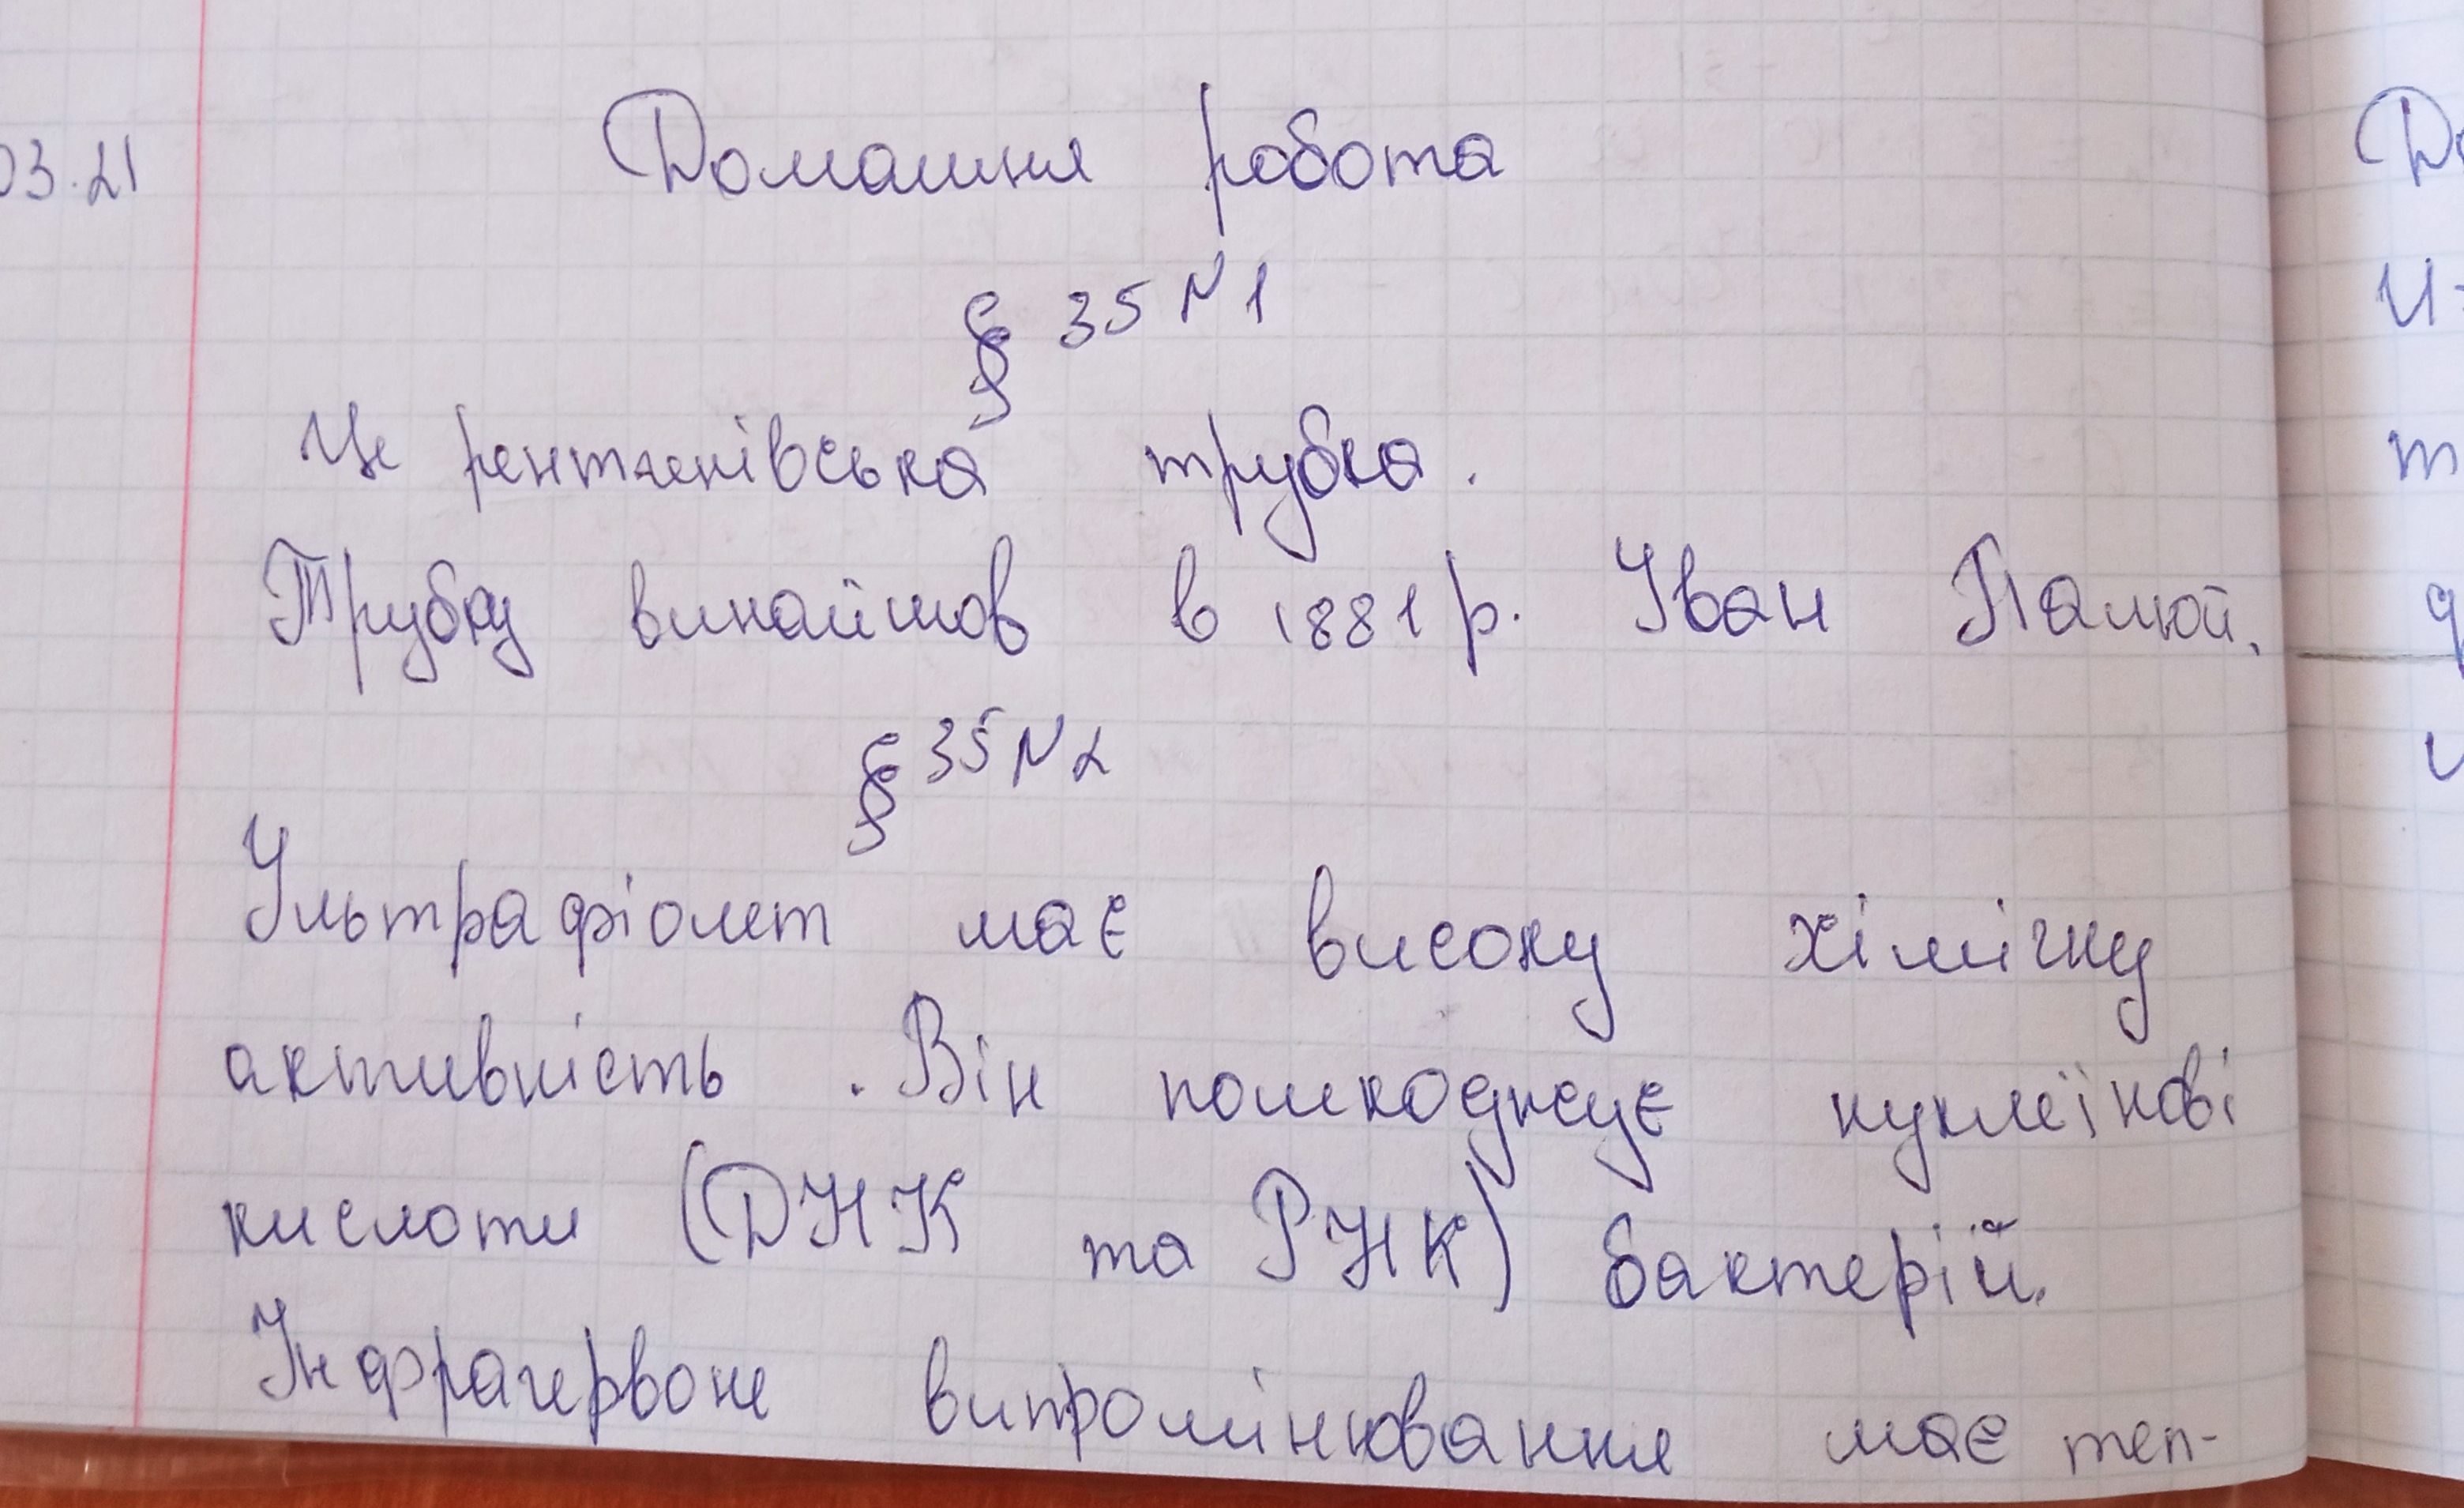 03.21
Домашня робота
§ 35 N 1
Це рентгенівська трубка.
Трубку винайшов в 1881 р. Іван Палюй.
§ 35 N 2
Ультрафіолет має високу хімічну
активність. Він пошкоджує нуклеїнові
кислоти (ДНК та РНК) бактерій.
Інфрачервоне випромінювання має теп-